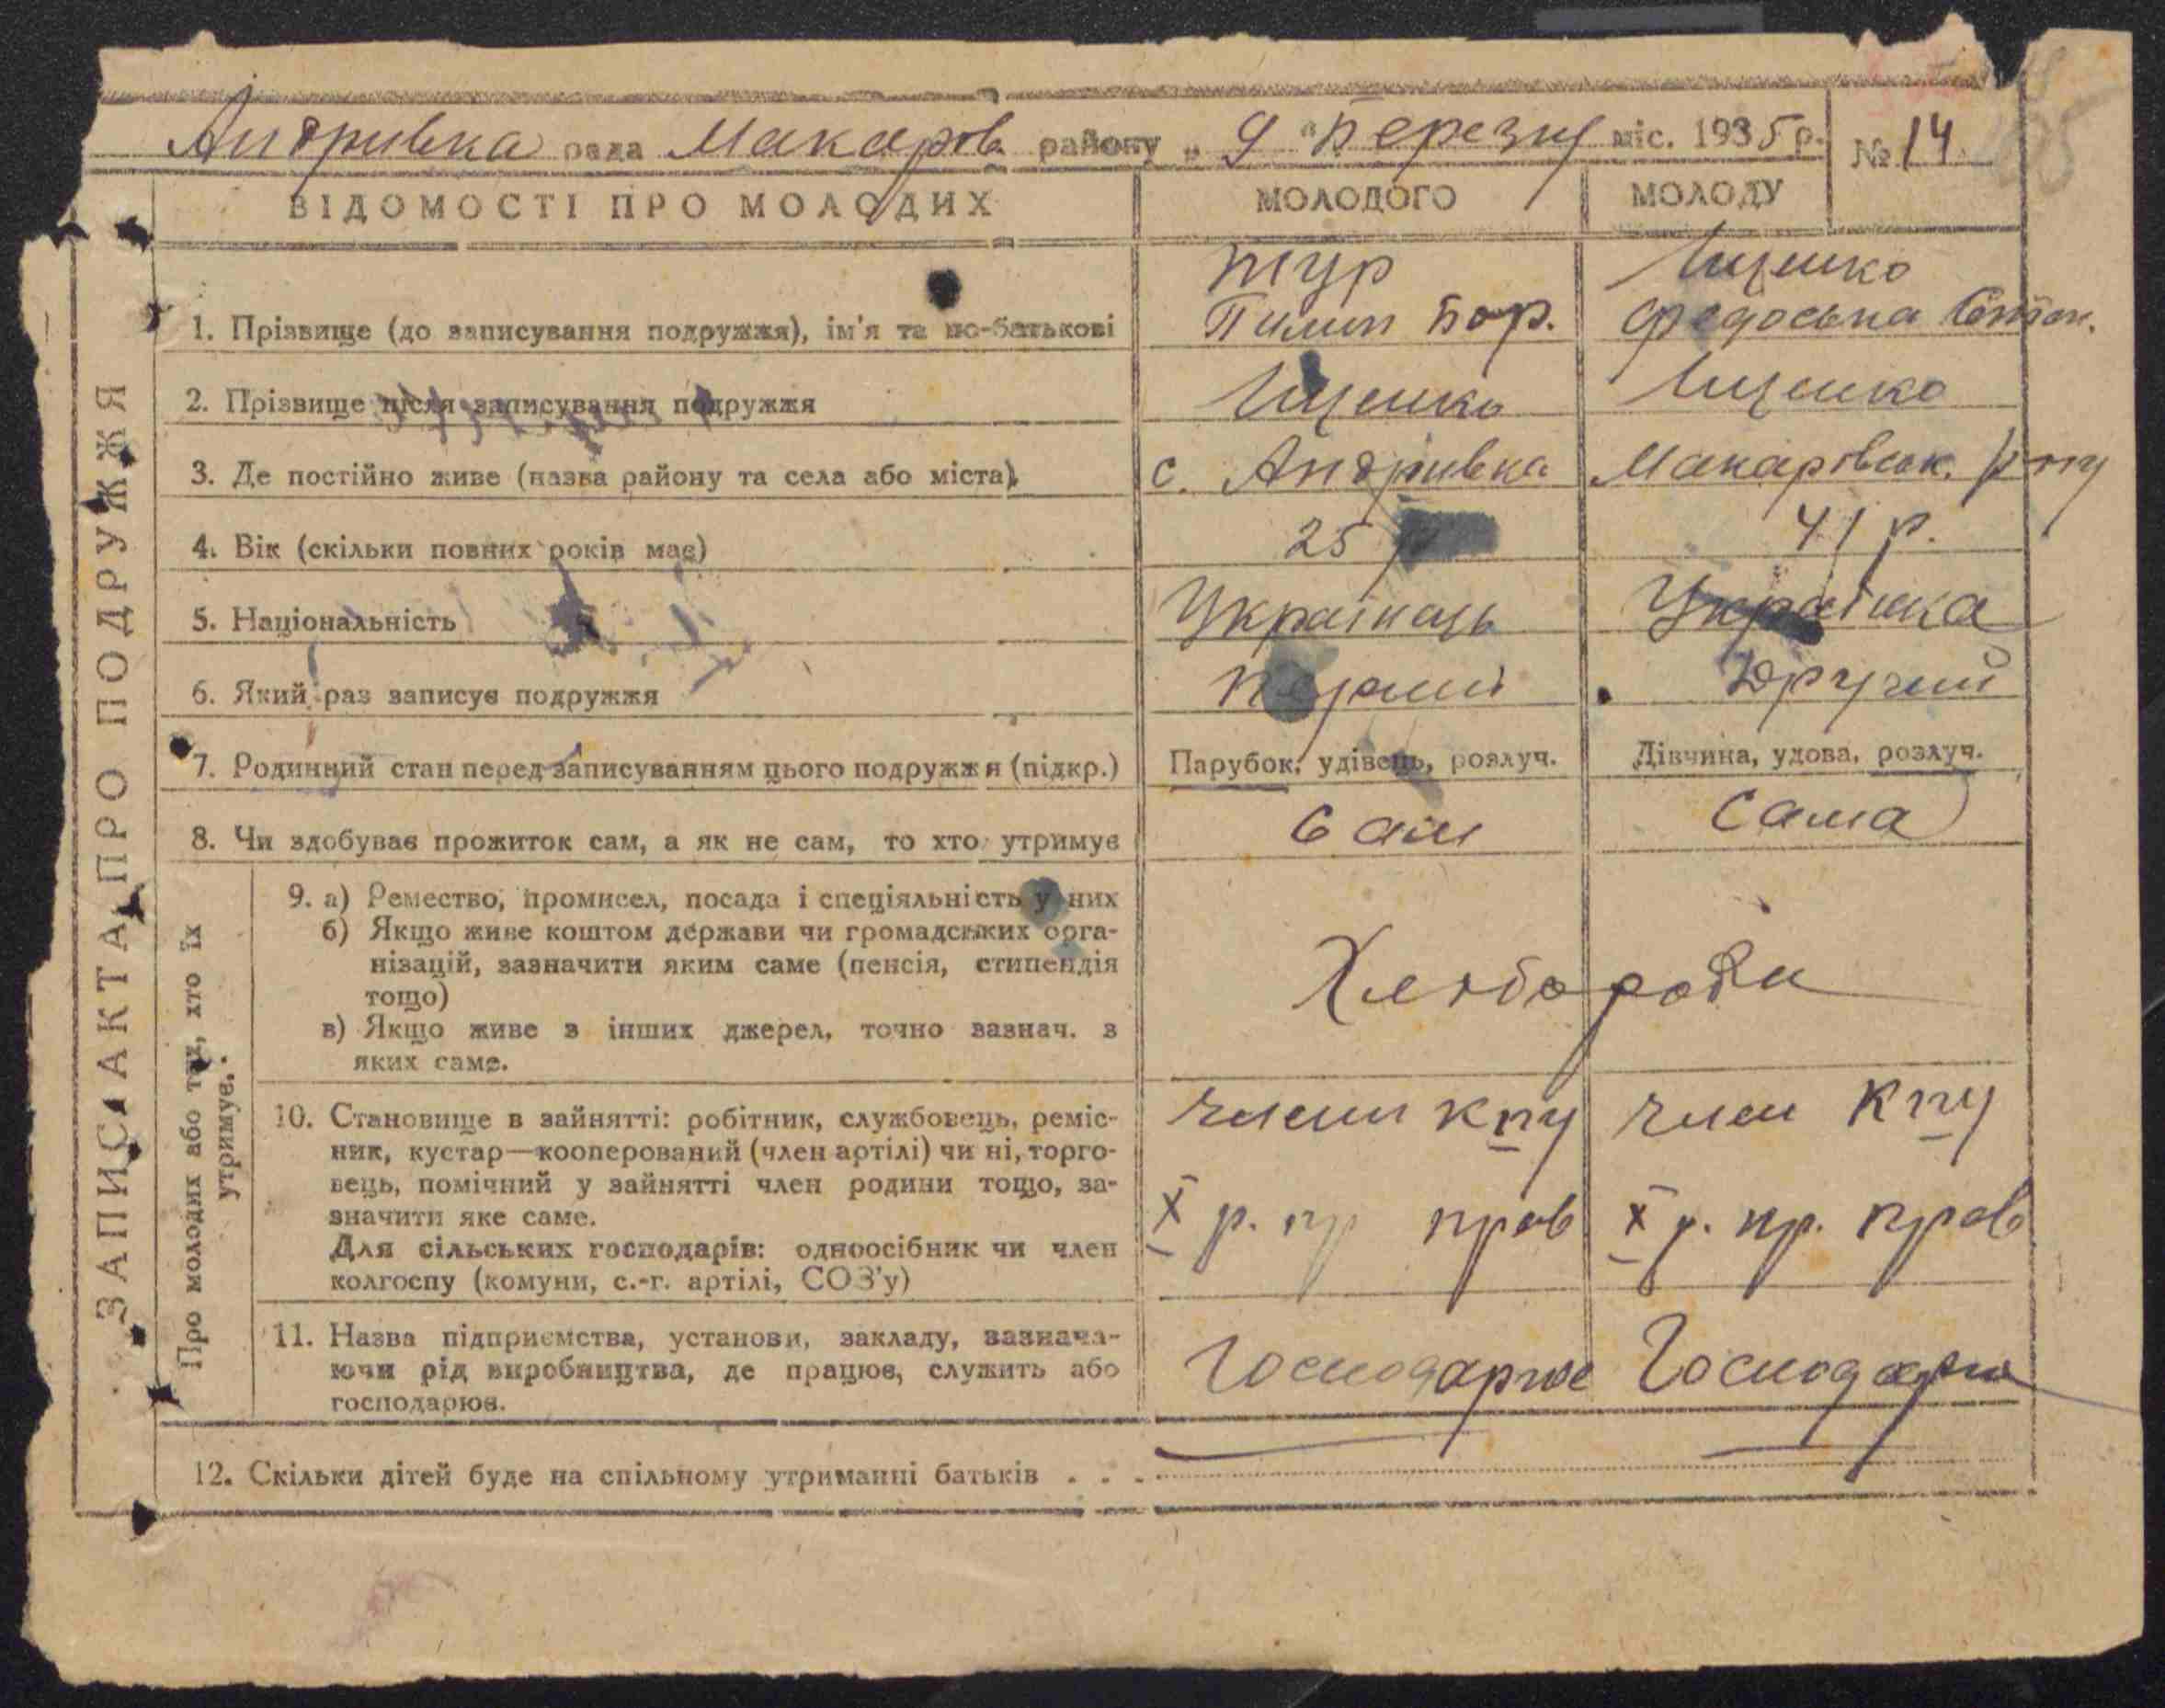 Андривка рада Макаров району „ 9 " Березня міс. 1935 р. № 14
ВІДОМОСТІ ПРО МОЛОДИХ МОЛОДОГО МОЛОДУ
ЗАПИС АКТА ПРО ПОДРУЖЖЯ
Тур Ищенко
1. Прізвище (до записування подружжя), ім'я та по-батькові Пилип Бор. Федоська Степан.
2. Прізвище після записування подружжя Ищенко Ищенко
3. Де постійно живе (назва району та села або міста) с. Андривка Макаровськ. р-ну
4. Вік (скільки повних років має) 25 р 41 р.
5. Національність Украінець Украінка
6. Який раз записує подружжя Перший Другий
7. Родинний стан перед записуванням цього подружжя (підкр.) Парубок, удівець, розлуч. Дівчина, удова, розлуч.
8. Чи здобуває прожиток сам, а як не сам, то хто утримує Сам Сама
Про молодих або тих, хто їх
утримує.
9. а) Ремество, промисел, посада і спеціяльність у них
б) Якщо живе коштом держави чи громадських орга-
нізацій, зазначити яким саме (пенсія, стипендія
тощо)
в) Якщо живе з інших джерел, точно зазнач. з
яких саме.
Хлібороби
10. Становище в зайнятті: робітник, службовець, реміс-
ник, кустар—кооперований (член артілі) чи ні, торго-
вець, помічний у зайнятті член родини тощо, за-
значити яке саме.
Для сільських господарів: одноосібник чи член
колгоспу (комуни, с.-г. артілі, СОЗ'у)
член член
X р. пр X р. пр.
11. Назва підприємства, установи, закладу, зазнача-
ючи рід виробництва, де працює, служить або
господарює.
Господарює Господарює
12. Скільки дітей буде на спільному утриманні батьків . . .